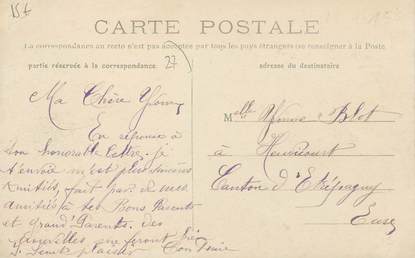 15 €
CARTE POSTALE
La correspondance au recto n'est pas acceptée par tous les pays étrangers (se renseigner à la Poste
partie réservée à la correspondance
27
adresse du destinataire
Ma Chère Yvonne
En réponse à
ton honorable lettre. je
t'envoie mes plus sincères
Amitiés, fait part de mes
amitiés à tes Bons Parents
et grand Parents. des
nouvelles me feront bien
plaisir
Melle Yvonne Blot
à Heudicourt
Canton d'Etrépagny
Eure